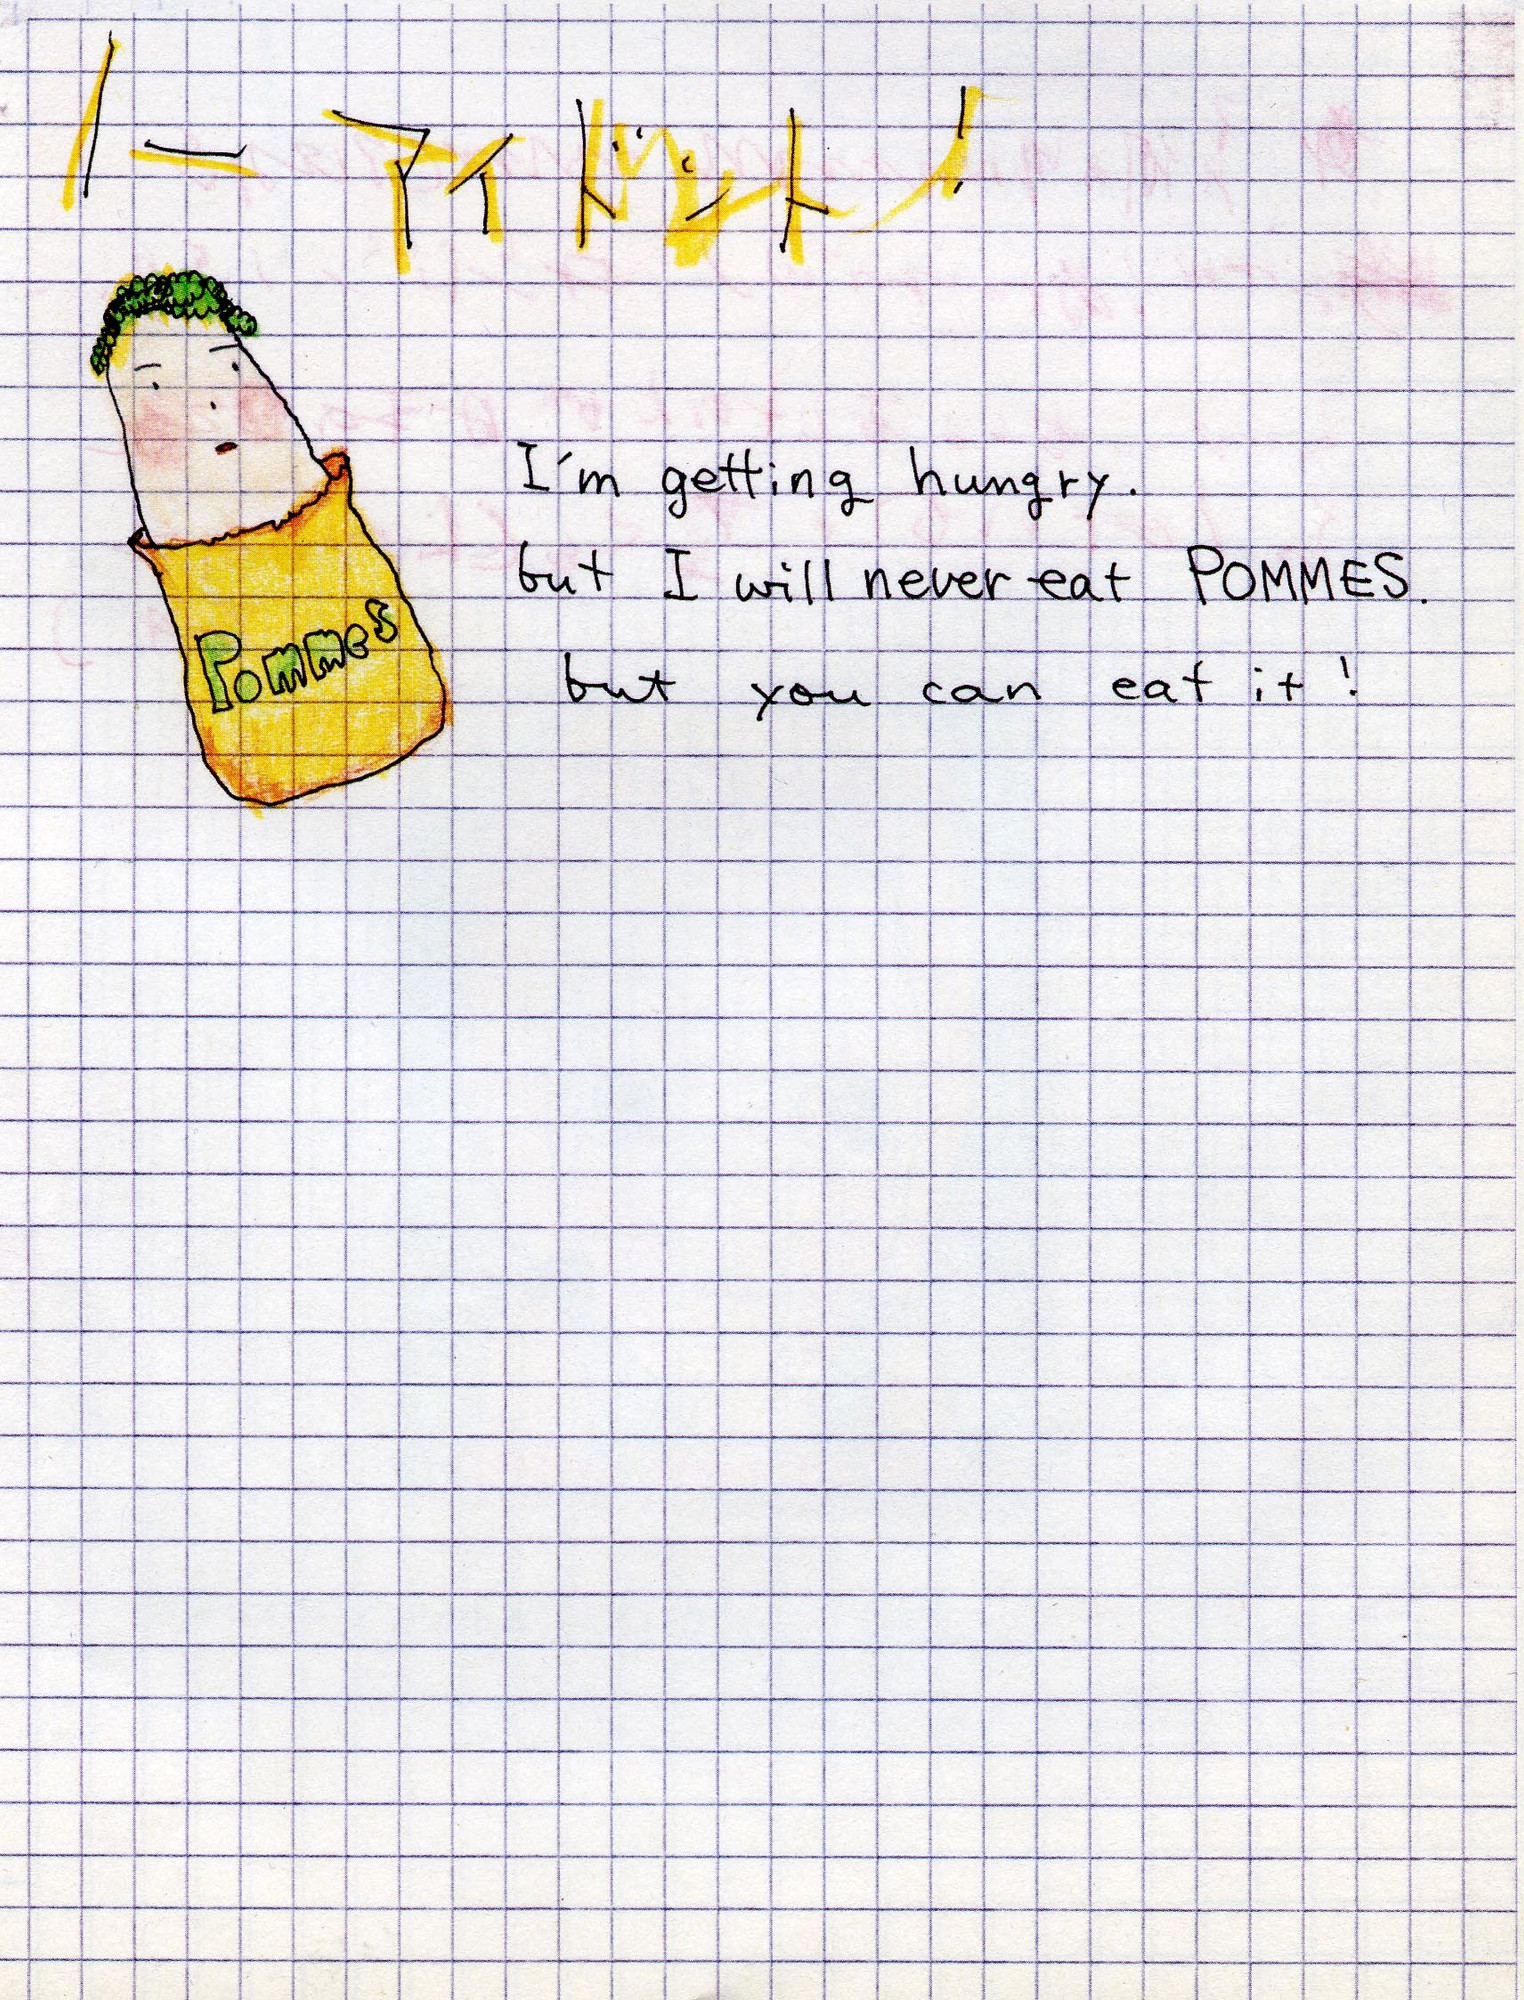 ノー アイ ドント!
Pommes
I'm getting hungry.
but I will never eat POMMES.
but you can eat it!